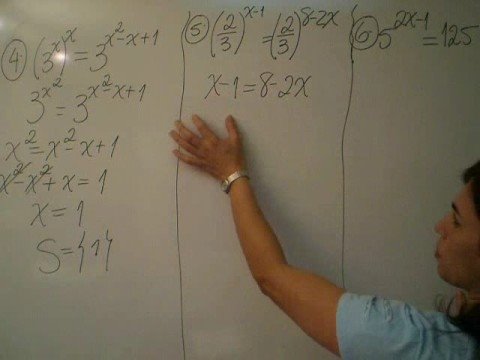 ④ (3^x)^x = 3^{x^2-x+1}
3^{x^2} = 3^{x^2-x+1}
x^2 = x^2-x+1
x^2-x^2+x = 1
x = 1
S = {1}
⑤ (2/3)^{x-1} = (2/3)^{8-2x}
x-1 = 8-2x
⑥ 5^{2x-1} = 125